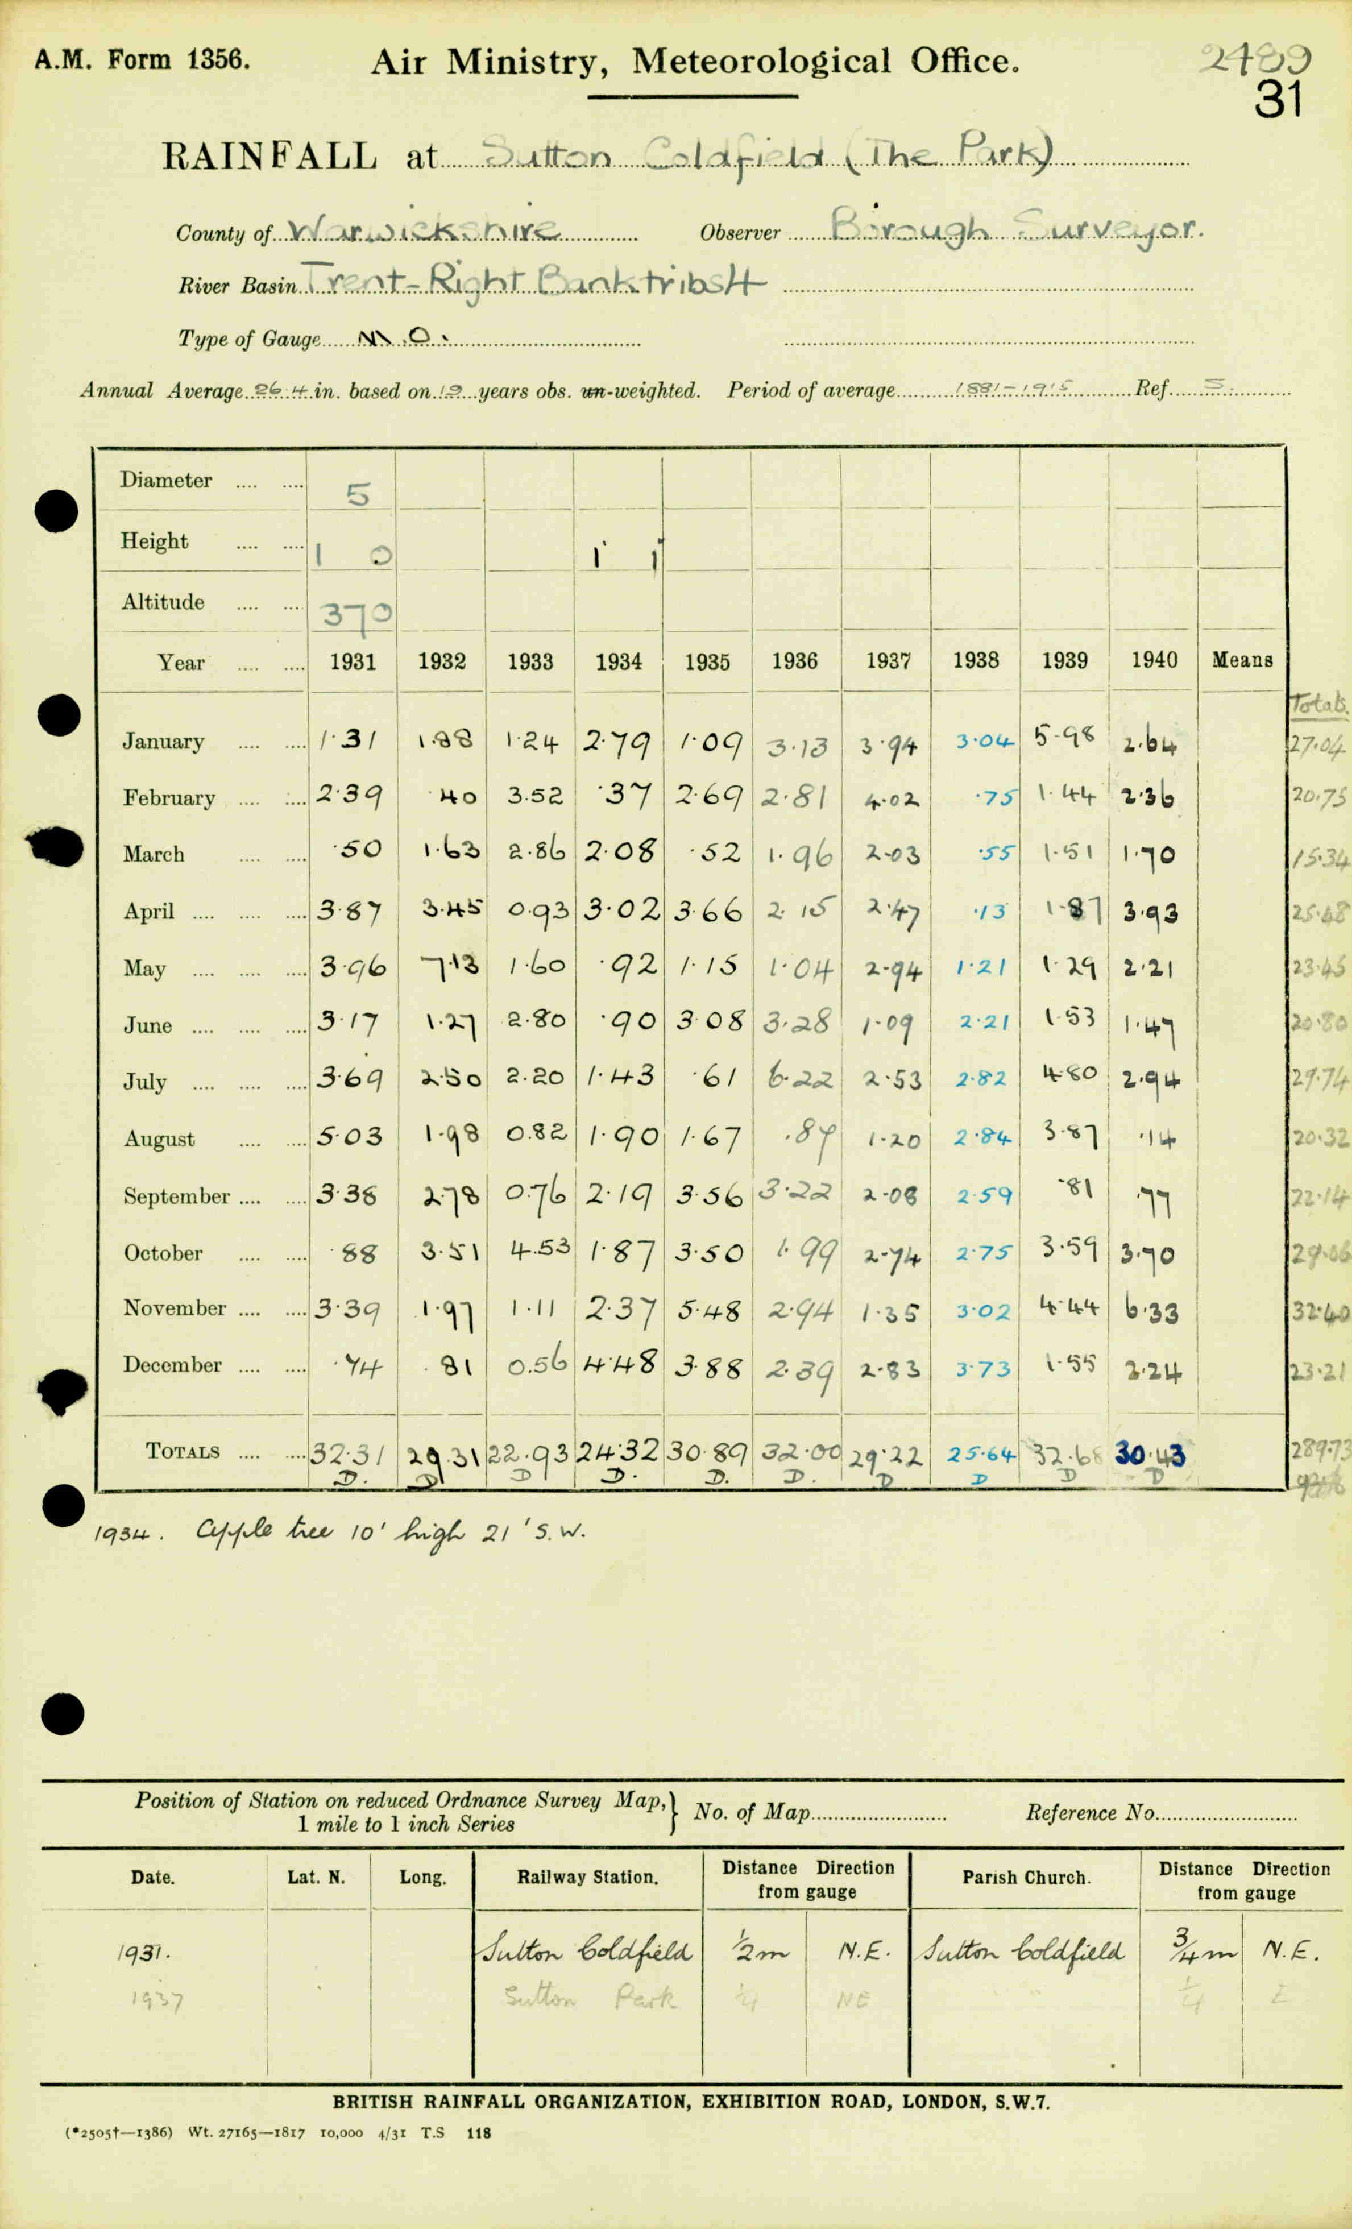 A.M. Form 1356. Air Ministry, Meteorological Office. 2489
31
RAINFALL at Sutton Coldfield (The Park)
County of Warwickshire Observer Borough Surveyor.
River Basin Trent-Right Bank tribs 4
Type of Gauge M.O.
Annual Average 26.4 in. based on 19 years obs. un-weighted. Period of average 1881-1915 Ref. S.
Diameter 5
Height 1 0 1 1
Altitude 370
Year 1931 1932 1933 1934 1935 1936 1937 1938 1939 1940 Means
Totals.
January 1.31 1.88 1.24 2.79 1.09 3.13 3.94 3.04 5.98 2.64 27.04
February 2.39 .40 3.52 .37 2.69 2.81 4.02 .75 1.44 2.36 20.75
March .50 1.63 2.86 2.08 .52 1.96 2.03 .55 1.51 1.70 15.34
April 3.87 3.45 0.93 3.02 3.66 2.15 2.47 .13 1.87 3.93 25.48
May 3.96 7.13 1.60 .92 1.15 1.04 2.94 1.21 1.29 2.21 23.45
June 3.17 1.27 2.80 .90 3.08 3.28 1.09 2.21 1.53 1.47 20.80
July 3.69 2.50 2.20 1.43 .61 6.22 2.53 2.82 4.80 2.94 29.74
August 5.03 1.98 0.82 1.90 1.67 .87 1.20 2.84 3.87 .14 20.32
September 3.38 2.78 0.76 2.19 3.56 3.22 2.08 2.59 .81 .77 22.14
October .88 3.51 4.53 1.87 3.50 1.99 2.74 2.75 3.59 3.70 29.06
November 3.39 1.97 1.11 2.37 5.48 2.94 1.35 3.02 4.44 6.33 32.40
December .74 .81 0.56 4.48 3.88 2.39 2.83 3.73 1.55 2.24 23.21
TOTALS 32.31 29.31 22.93 24.32 30.89 32.00 29.22 25.64 32.68 30.43 289.73
D. D D D. D. D. D D D D
1934. Apple tree 10' high 21' S.W.
Position of Station on reduced Ordnance Survey Map, 1 mile to 1 inch Series } No. of Map Reference No.
Date. Lat. N. Long. Railway Station. Distance Direction from gauge Parish Church. Distance Direction from gauge
1931. Sutton Coldfield 1/2 m N.E. Sutton Coldfield 3/4 m N.E.
1937 Sutton Park 1/4 NE " " 1/4 E
BRITISH RAINFALL ORGANIZATION, EXHIBITION ROAD, LONDON, S.W.7.
(*2505†—1386) Wt. 27165—1817 10,000 4/31 T.S 118